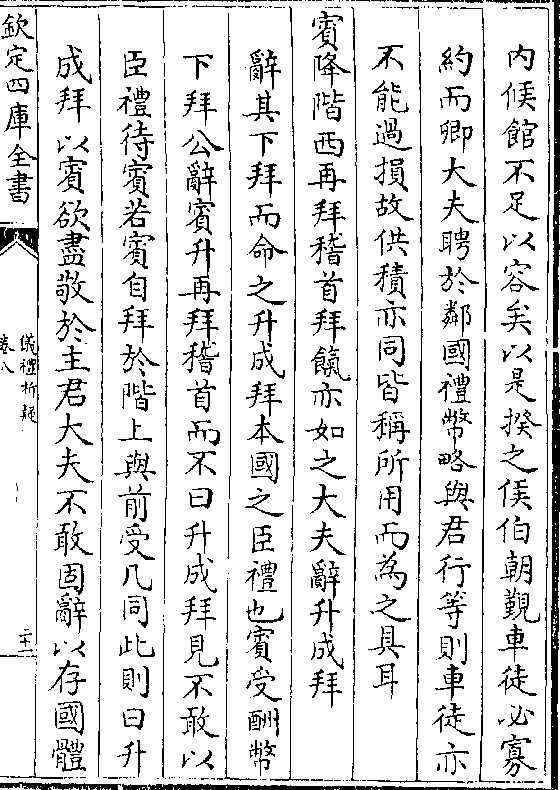 内候館不足以容矣以是揆之侯伯朝覲車徒必寡
約而卿大夫聘於鄰國禮幣略與君行等則車徒亦
不能過損故供積亦同皆稱所用而為之具耳
賓降階西再拜稽首拜餼亦如之大夫辭升成拜
辭其下拜而命之升成拜本國之臣禮也賓受酬幣
下拜公辭賓升再拜稽首而不曰升成拜見不敢以
臣禮待賓若賓自拜於階上與前受几同此則曰升
成拜以賓欲盡敬於主君大夫不敢固辭以存國體
欽定四庫全書
儀禮析疑
卷八
二十一